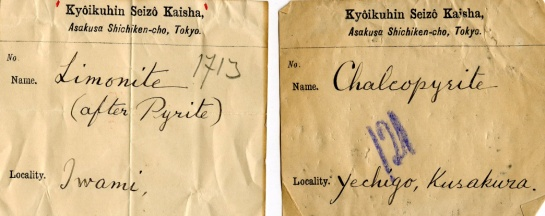 Kyôikuhin Seizô Kaisha,
Asakusa Shichiken-cho, Tokyo.
No
Name. Limonite 1713
(after Pyrite)
Locality. Iwami,
Kyôikuhin Seizô Kaisha,
Asakusa Shichiken-cho, Tokyo.
No.
Name. Chalcopyrite
121
Locality. Yechigo, Kusakura.